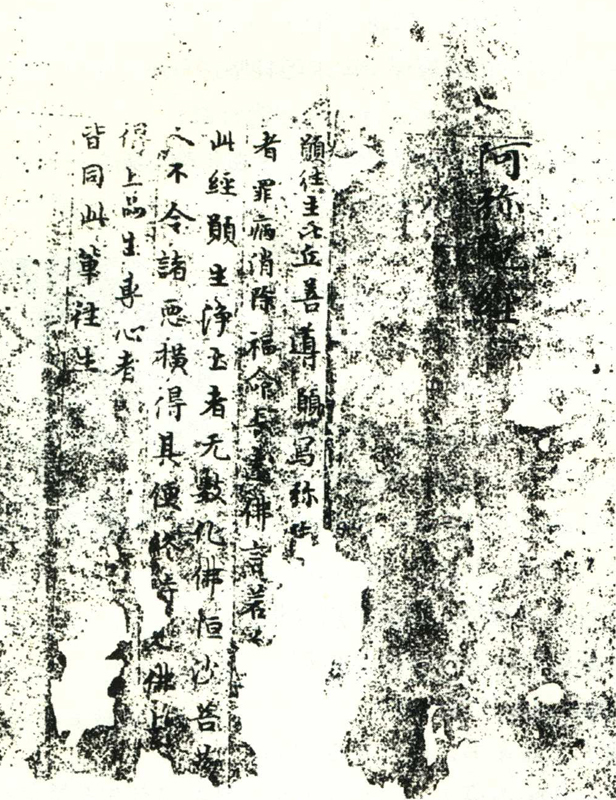 阿弥陁經
願往生比丘善導願寫弥陁
者罪病消除福命長遠佛言若
此經願生淨土者无數化佛恒沙菩
不令諸惡横得其便終時佛
得上品生専心者
皆同此輩往生